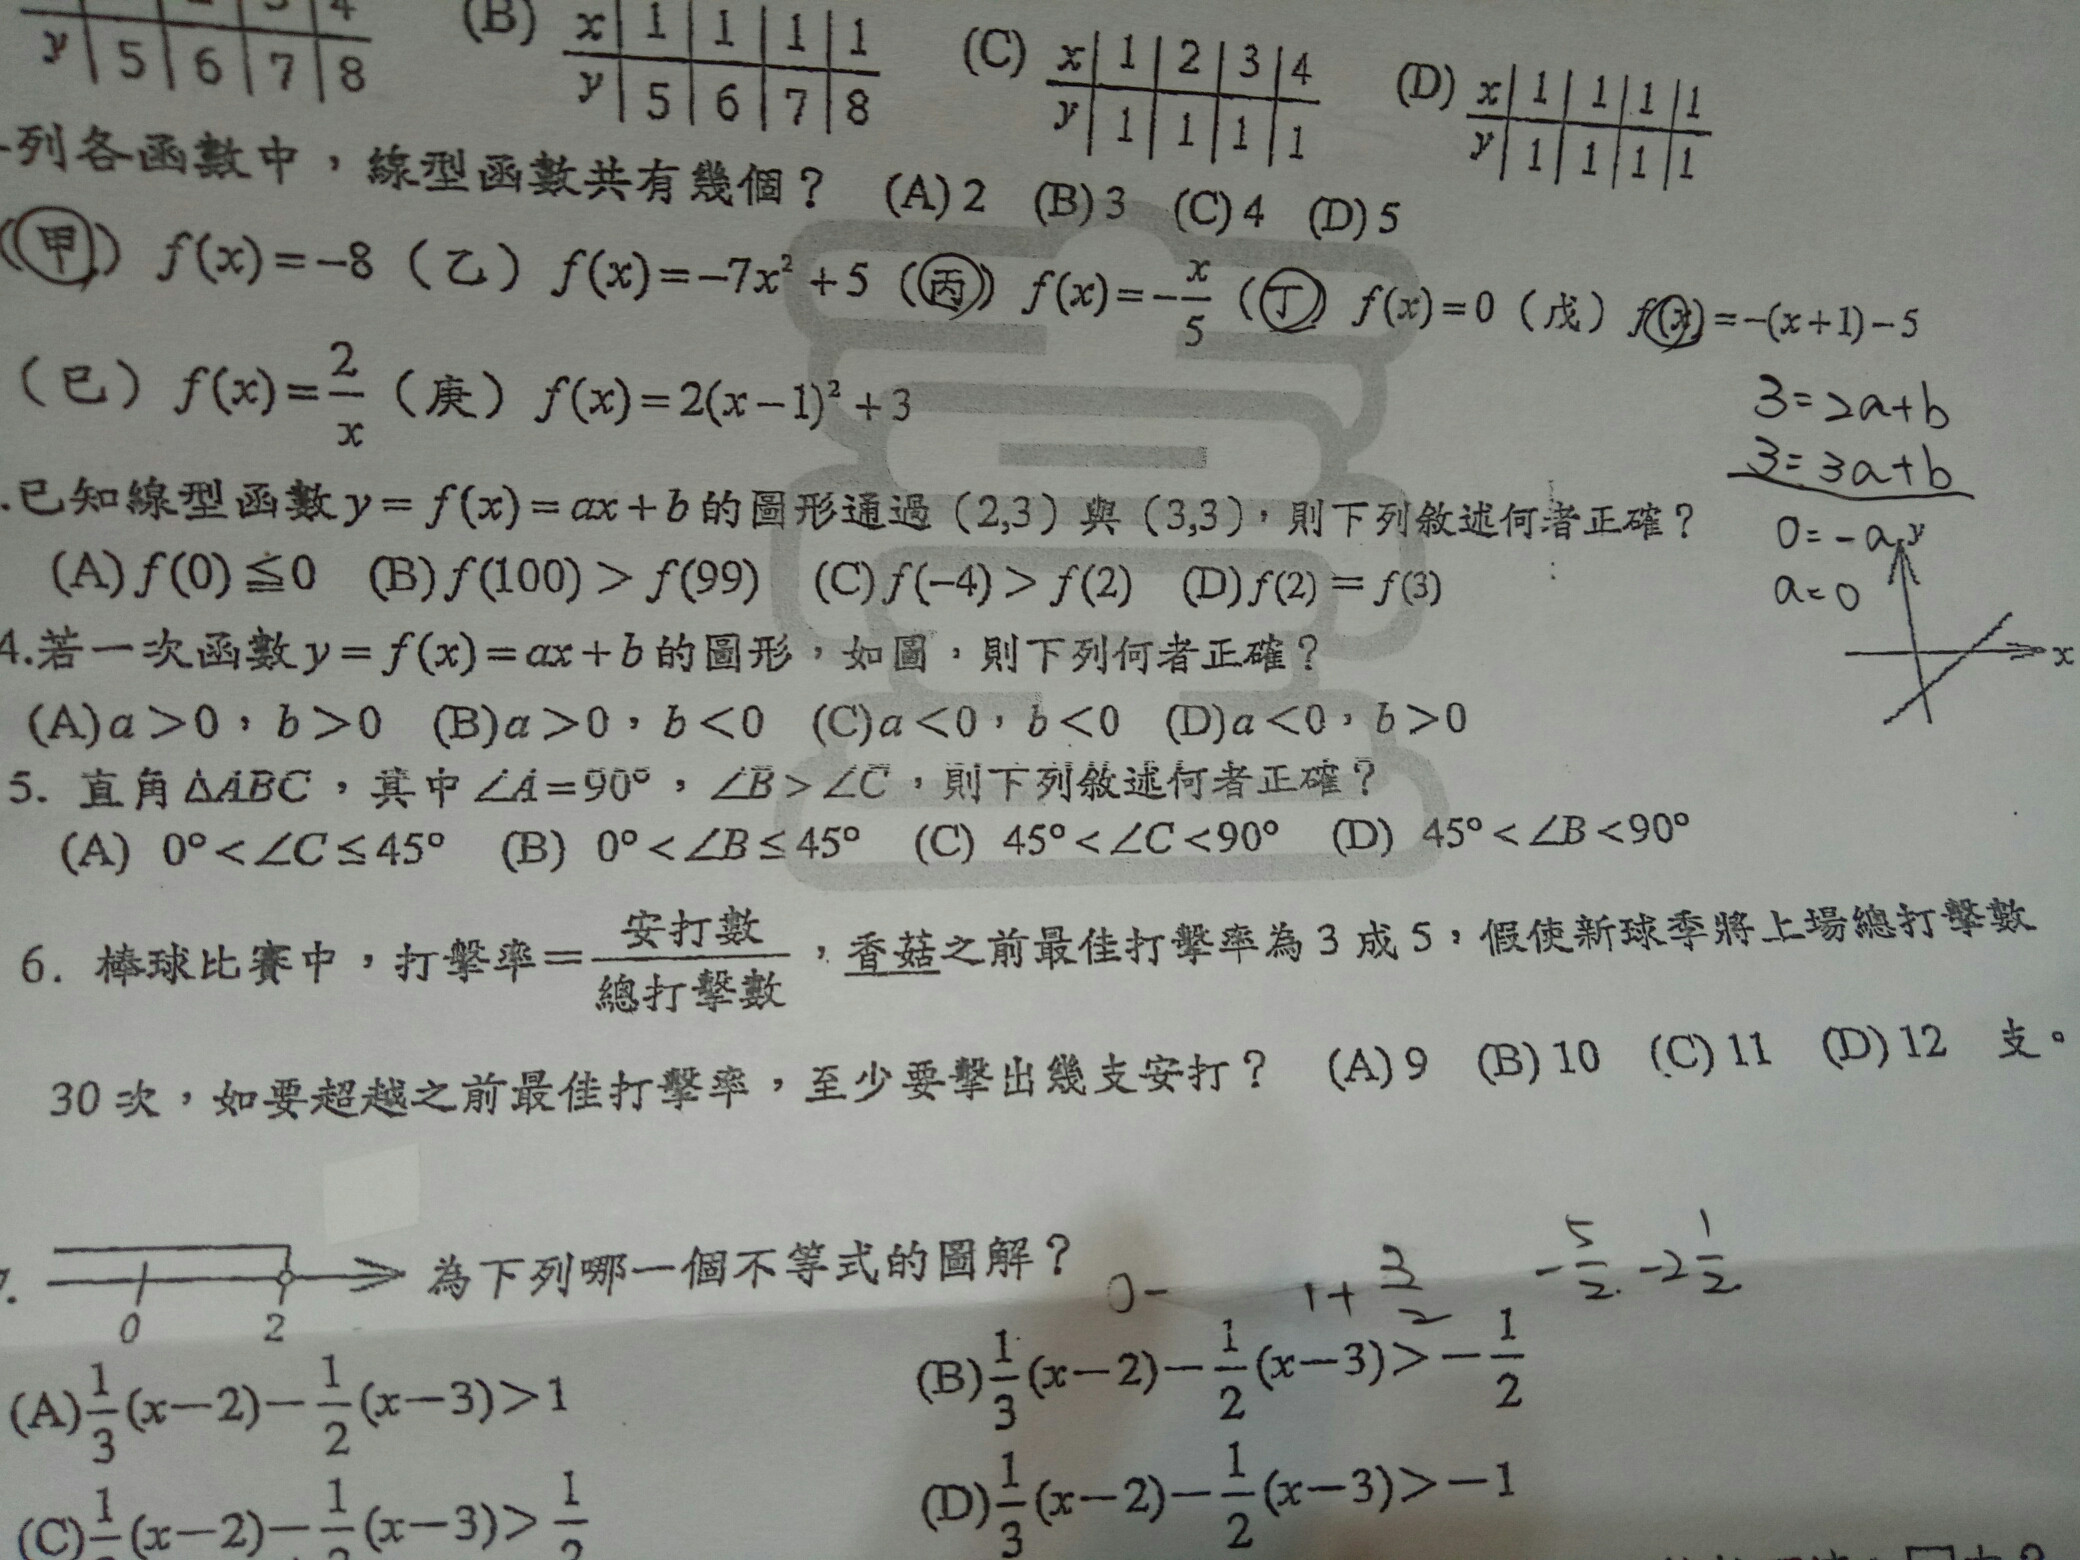 y 5 6 7 8 (B) x 1 1 1 1 (C) x 1 2 3 4 (D) x 1 1 1 1
y 5 6 7 8 y 1 1 1 1 y 1 1 1 1
列各函數中，線型函數共有幾個？ (A) 2 (B) 3 (C) 4 (D) 5
(甲) f(x)=−8 (乙) f(x)=−7x²+5 (丙) f(x)=−x/5 (丁) f(x)=0 (戊) f(x)=−(x+1)−5
(已) f(x)=2/x (庚) f(x)=2(x−1)²+3
3=2a+b
3=3a+b
0=-a
a=0
.已知線型函數y=f(x)=ax+b的圖形通過（2,3）與（3,3），則下列敘述何者正確？
(A) f(0)≦0 (B) f(100)>f(99) (C) f(−4)>f(2) (D) f(2)=f(3)
y
x
4.若一次函數y=f(x)=ax+b的圖形，如圖，則下列何者正確？
(A)a>0，b>0 (B)a>0，b<0 (C)a<0，b<0 (D)a<0，b>0
5. 直角ΔABC，其中∠A=90°，∠B>∠C，則下列敘述何者正確？
(A) 0°<∠C≤45° (B) 0°<∠B≤45° (C) 45°<∠C<90° (D) 45°<∠B<90°
6. 棒球比賽中，打擊率=安打數/總打擊數，香菇之前最佳打擊率為3成5，假使新球季將上場總打擊數
30次，如要超越之前最佳打擊率，至少要擊出幾支安打？ (A) 9 (B) 10 (C) 11 (D) 12 支。
0 2 為下列哪一個不等式的圖解？
0- 1+3/2 -5/2 -2 1/2
(A) 1/3(x−2)−1/2(x−3)>1 (B) 1/3(x−2)−1/2(x−3)>−1/2
(C) 1(x−2)−1(x−3)>1/2 (D) 1/3(x−2)−1/2(x−3)>−1